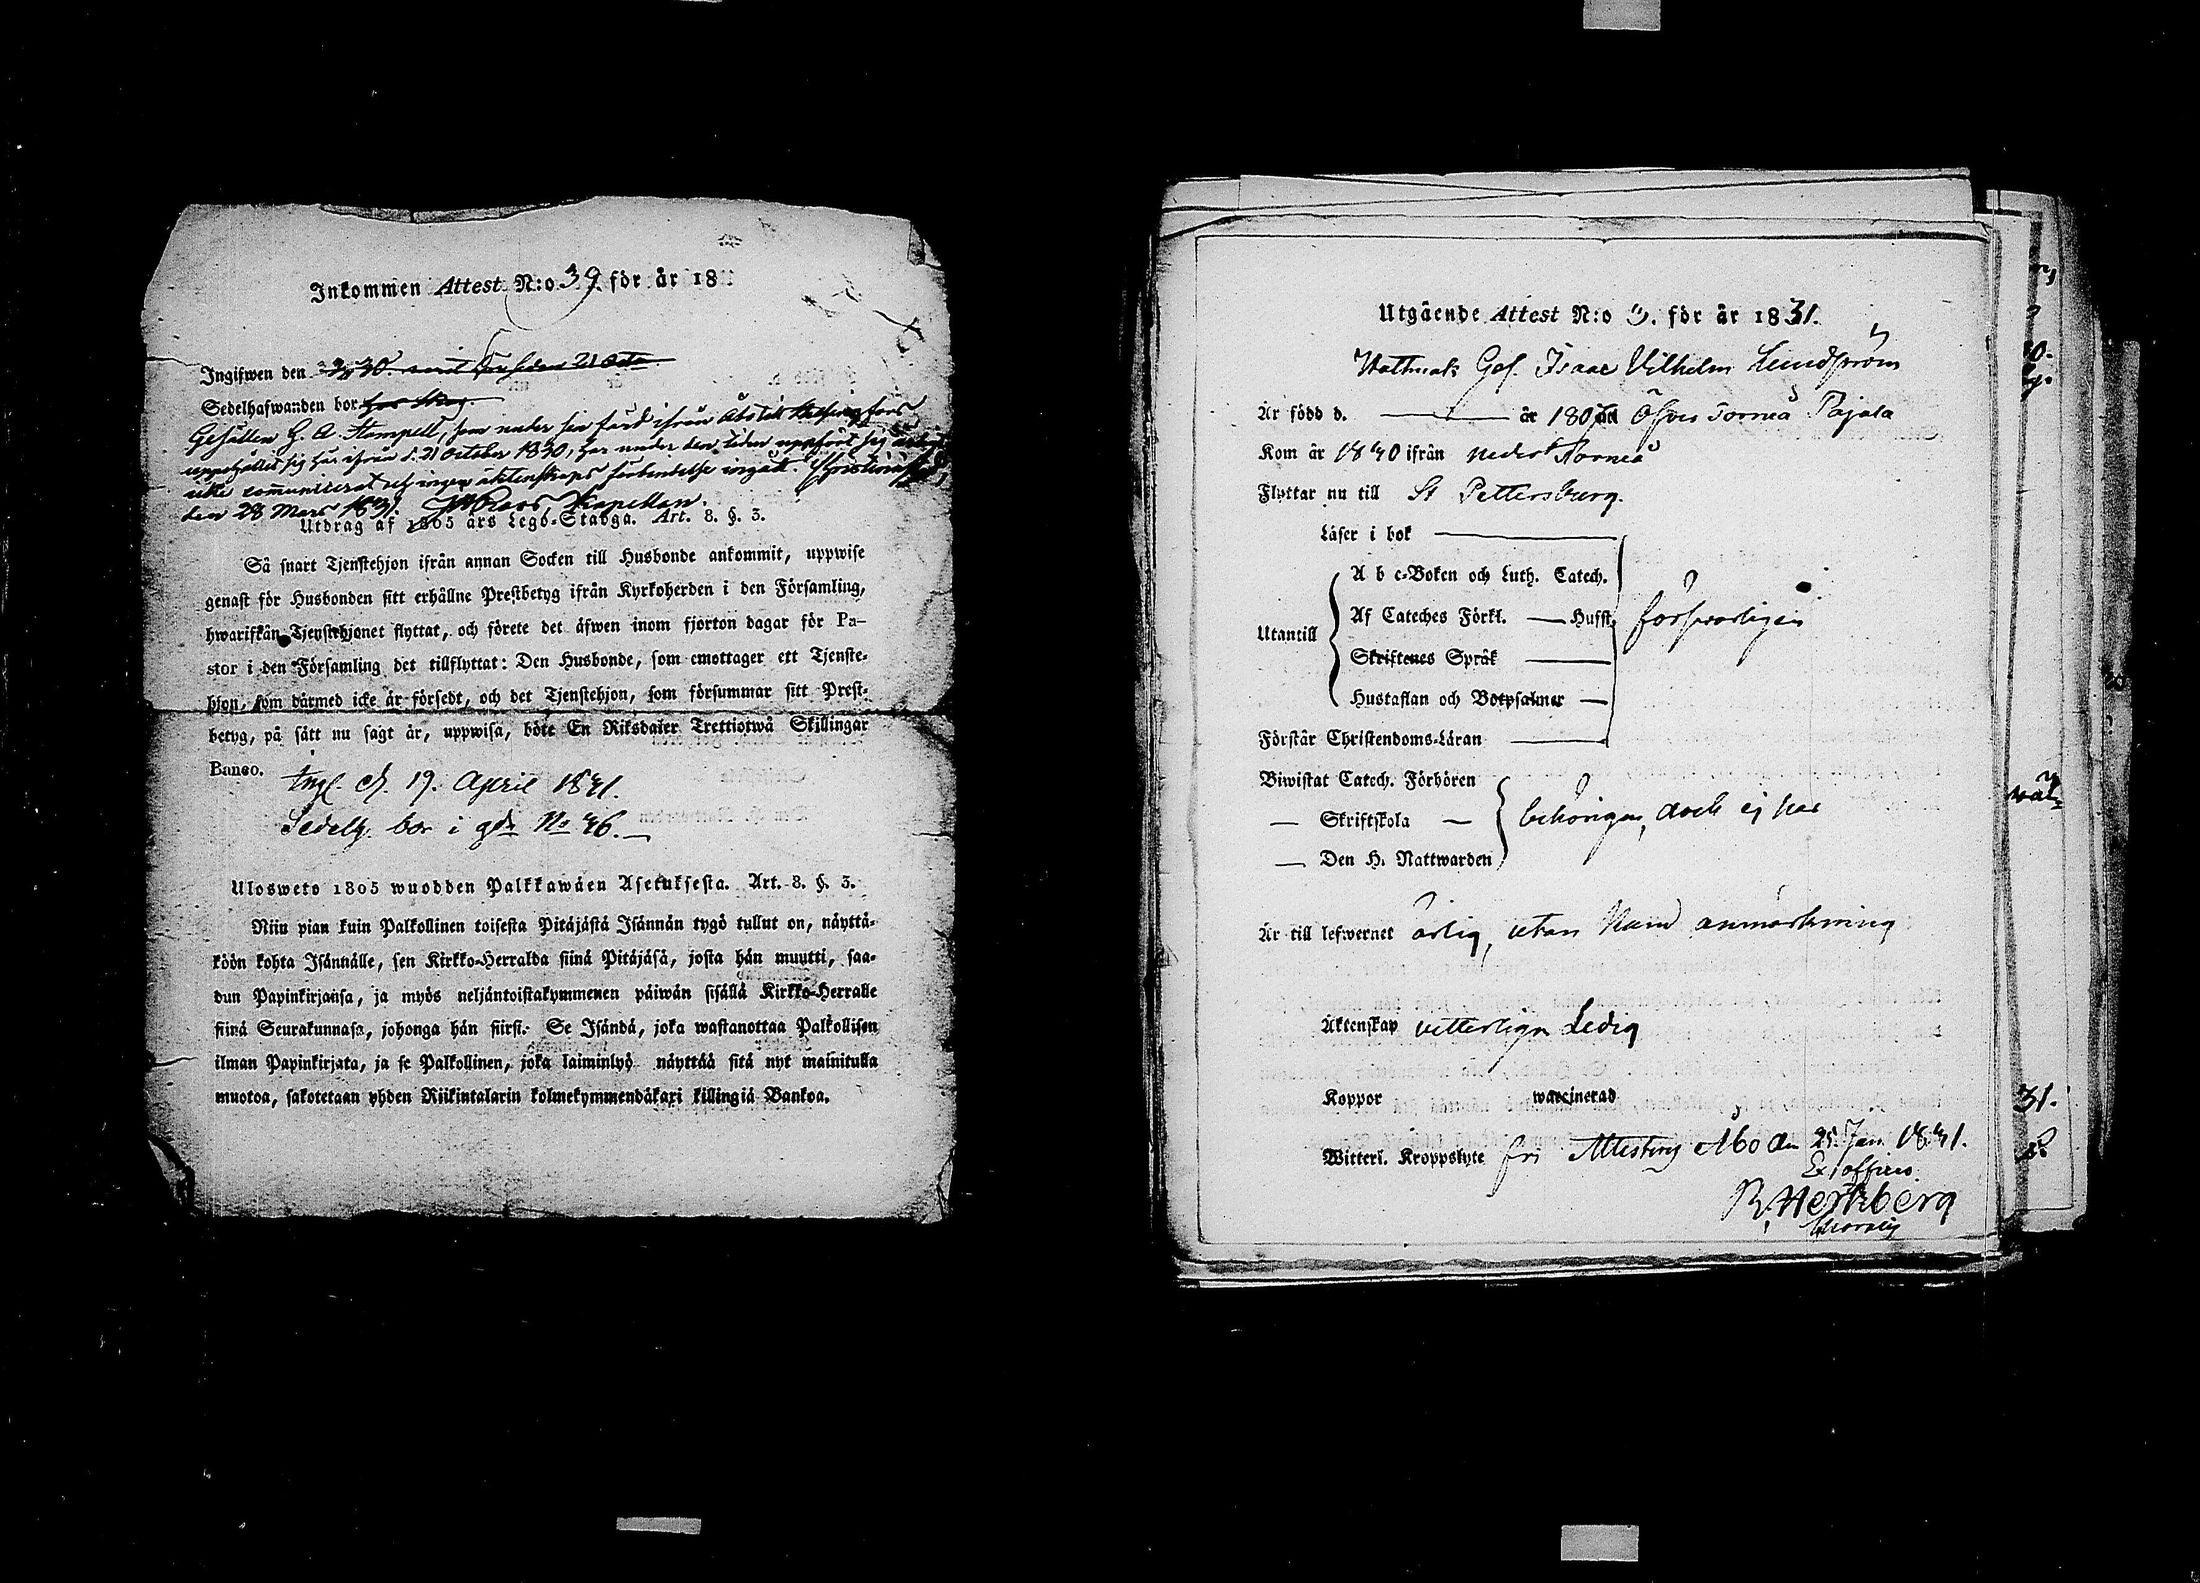 Inkommen Attest N:o 39 för år 18
Ingifwen den
Sedelhafwanden bor
Gesällen G. A. Stampell, som under sin färd ifrån Åbo till Helsingfors
uppehållit sig här ifrån d. 21 October 1830, har under den tiden uppfört sig
icke communicerat ej ingen äktenskaps förbindelse ingått. Christinestad
den 28 Mars 1831. Kapellan.
Utdrag af 1805 års Lego-Stadga. Art. 8. §. 3.
Så snart Tjenstehjon ifrån annan Socken till Husbonde ankommit, uppwise
genast för Husbonden sitt erhållne Prestbetyg ifrån Kyrkoherden i den Församling,
hwarifrån Tjenstehjonet flyttat, och förete det äfwen inom fjorton dagar för Pa-
stor i den Församling det tillflyttat: Den Husbonde, som emottager ett Tjenste-
hjon, som därmed icke är försedt, och det Tjenstehjon, som försummar sitt Prest-
betyg, på sätt nu sagt är, uppwisa, böte En Riksdaler Trettiotwå Skillingar
Banco.
Ingl. d. 19. April 1831.
Sedelh. bor i gdn No 46.
Ulosweto 1805 wuodden Palkkawäen Asetuksesta. Art. 8. §. 3.
Niin pian kuin Palkollinen toisesta Pitäjästä Isännän tygö tullut on, näyttä-
köön kohta Isännälle, sen Kirkko-Herralda siinä Pitäjäsä, josta hän muutti, saa-
dun Papinkirjansa, ja myös neljäntoistakymmenen päiwän sisällä Kirkko-Herralle
siinä Seurakunnasa, johonga hän siirsi. Se Isändä, joka wastanottaa Palkollisen
ilman Papinkirjata, ja se Palkollinen, joka laiminlyö näyttää sitä nyt mainitulla
muotoa, sakotetaan yhden Riikintalarin kolmekymmendäkaxi killingiä Bankoa.
Utgående Attest N:o 3. för år 1831.
Wattmak Ges. Isaac Vilhelm Lundström
Är född d. — år 180 Öfver Torneå Pajala
Kom år 1830 ifrån neder Torneå
Flyttar nu till St Pettersburg.
Läser i bok —
A b c-Boken och Luth. Catech.
Af Cateches Förkl. — Husst.
försvarligen
Utantill
Skriftenes Språk —
Hustaflan och Botpsalmer —
Förstår Christendoms-Läran —
Biwistat Catech. Förhören
— Skriftskola —
behörigen, dock ej här
— Den H. Nattwarden
Är till lefwernet ärlig, utan känd anmärkning
Äktenskap vetterligen Ledig
Koppor waccinerad
Witterl. Kroppslyte fri Attesterg Åbo den 25. Jan. 1831.
Ex officio
R. Hertzberg